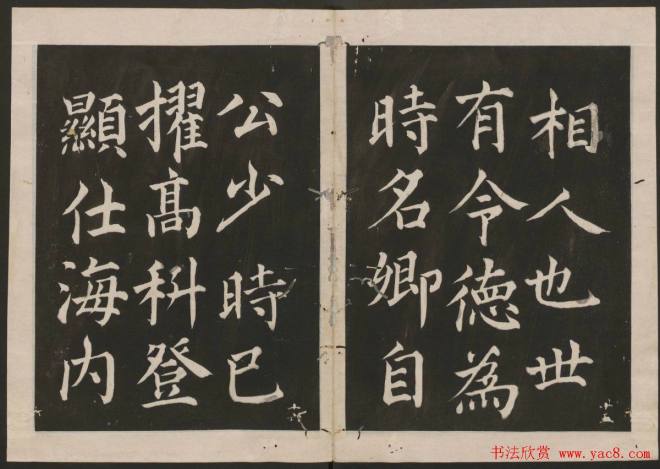 相人也世
有令德為
時名卿自
公少時已
擢高科登
顯仕海内
十五
书法欣赏 www.yac8.com